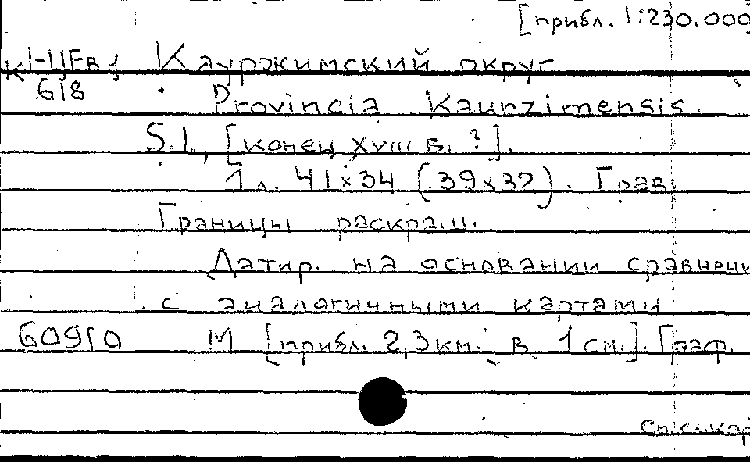 [прибл. 1:230.000
К 1-ЦЕв/618 Кауржимский округ
Provincia Kaurzimensis.
S.l., [конец XVIII в. ?].
1 л. 41x34 (39x32). Грав.
Границы раскраш.
Датир. на основании сравнени
с аналогичными картами
60910 М [прибл. 2,3 км. в 1 см.]. Граф.